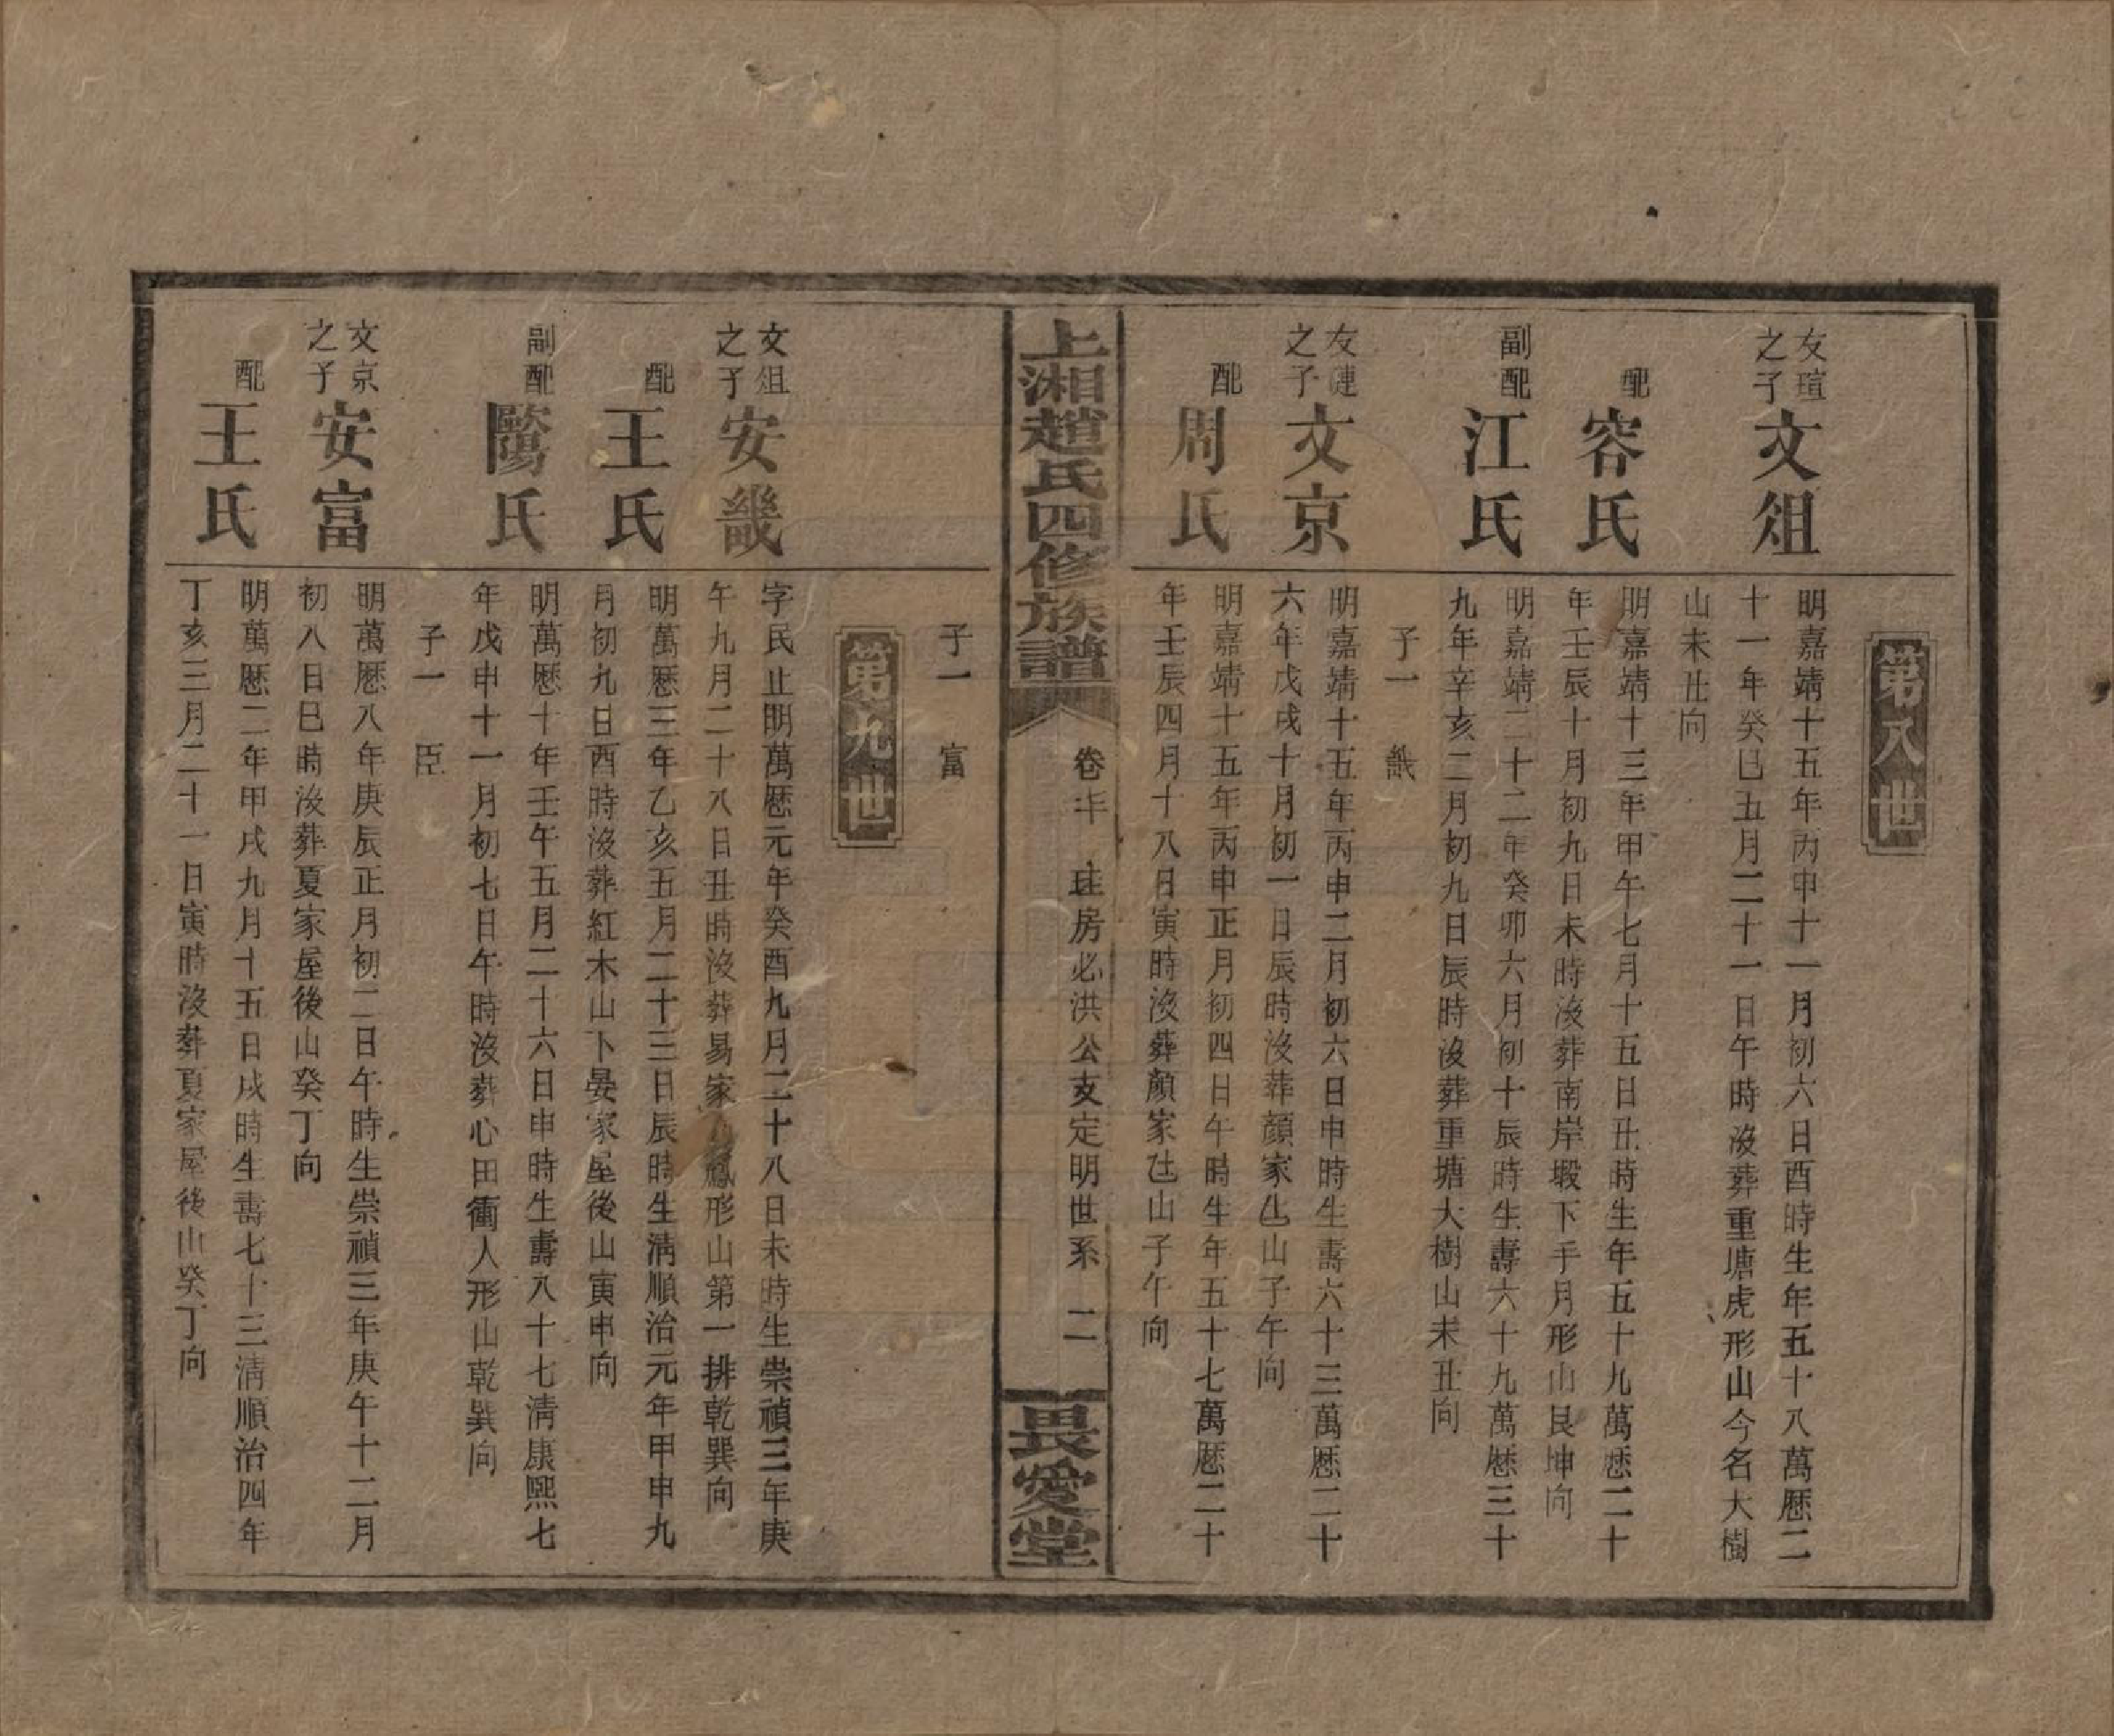 第八世
友瑄之子
文俎
明嘉靖十五年丙申十一月初六日酉時生年五十八萬歷二
十一年癸巳五月二十一日午時沒葬重塘虎形山今名大樹
山未丑向
配
容氏
明嘉靖十三年甲午七月十五日丑時生年五十九萬歷二十
年壬辰十月初九日未時沒葬南岸塅下手月形山艮坤向
副配
江氏
明嘉靖二十二年癸卯六月初十辰時生壽六十九萬歷三十
九年辛亥二月初九日辰時沒葬重塘大樹山未丑向
子一 畿
友漣之子
文京
明嘉靖十五年丙申二月初六日申時生壽六十三萬歷二十
六年戊戌十月初一日辰時沒葬顏家山子午向
配
周氏
明嘉靖十五年丙申正月初四日午時生年五十七萬歷二十
年壬辰四月十八日寅時沒葬顏家山子午向
上湘趙氏四修族譜
卷 房必洪公支定明世系 二
畏愛堂
子一 富
第九世
文俎之子
安畿
字民止明萬歷元年癸酉九月二十八日未時生崇禎三年庚
午九月二十八日丑時沒葬易家鳳形山第一排乾巽向
配
王氏
明萬歷三年乙亥五月二十三日辰時生清順治元年甲申九
月初九日酉時沒葬紅木山下晏家屋後山寅申向
副配
陽氏
明萬歷十年壬午五月二十六日申時生壽八十七清康熙七
年戊申十一月初七日午時沒葬心田衝人形山乾巽向
子一 臣
文京之子
安富
明萬歷八年庚辰正月初二日午時生崇禎三年庚午十二月
初八日巳時沒葬夏家屋後山癸丁向
配
王氏
明萬歷二年甲戌九月十五日戌時生壽七十三清順治四年
丁亥三月二十一日寅時沒葬夏家屋後山癸丁向